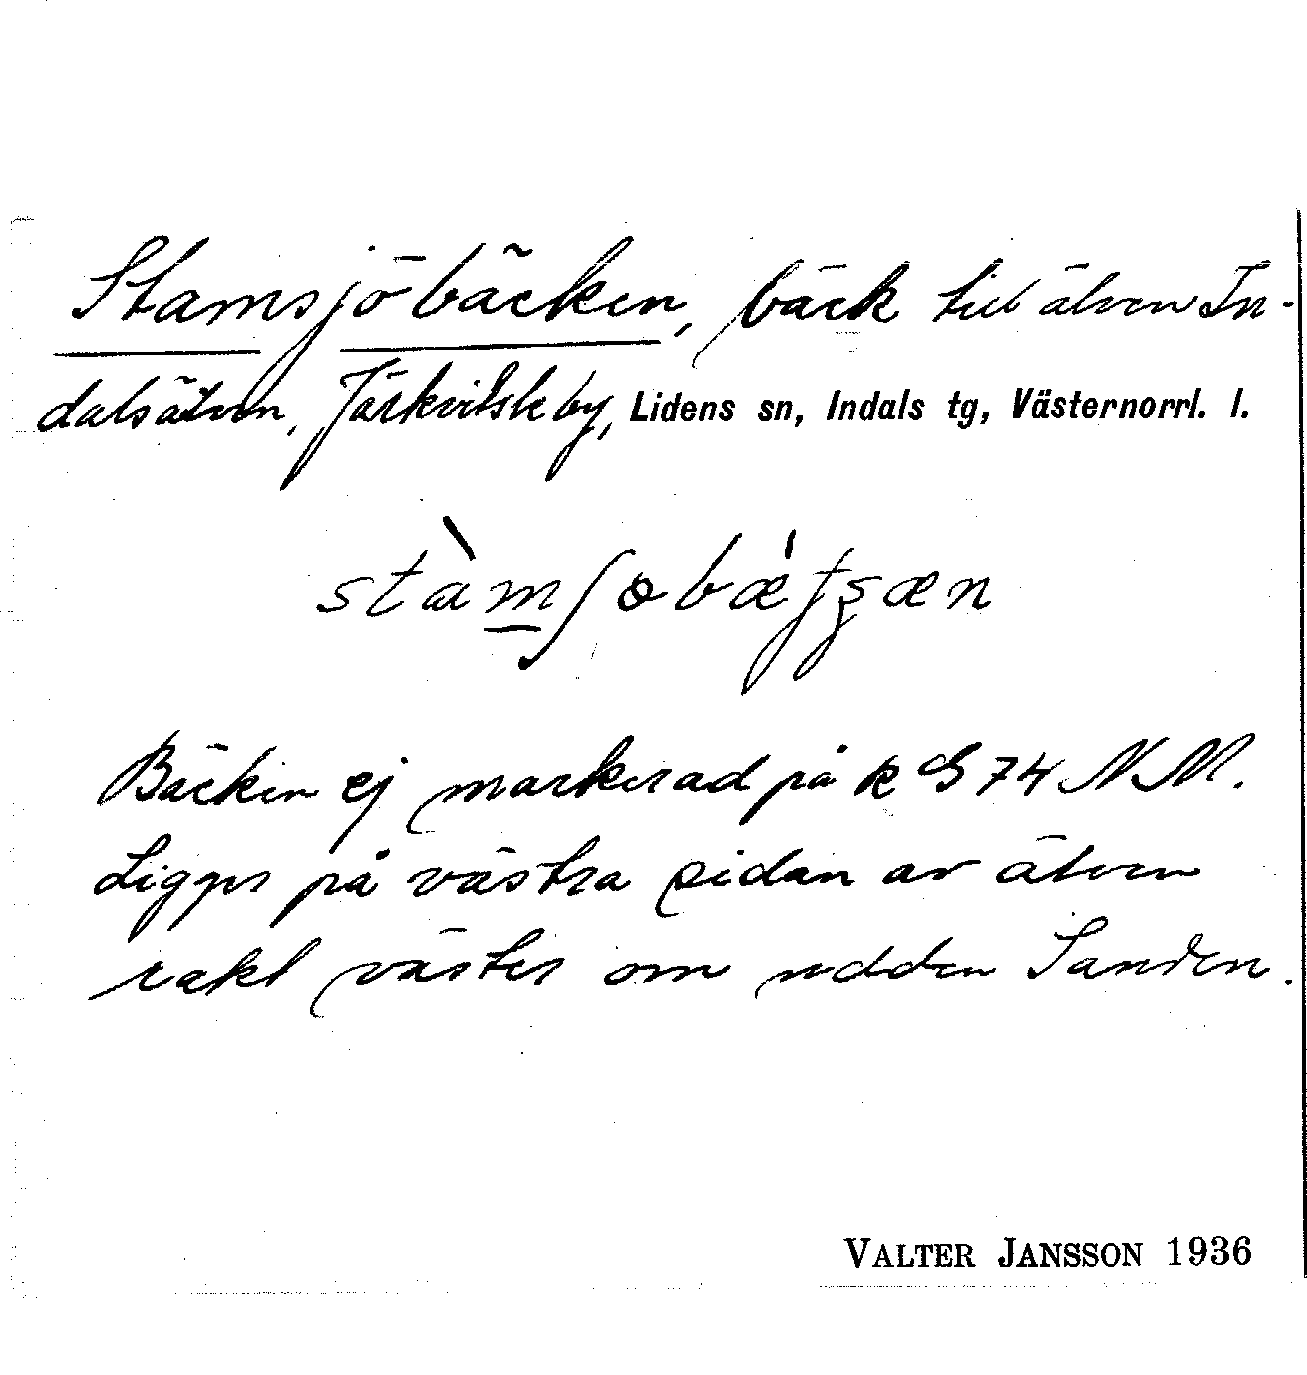 Stamsjöbäcken, bäck till älven In-
dalsälven, Järkvitsle by, Lidens sn, Indals tg, Västernorrl. l.
Bäcken ej markerad på k G 74 NM.
Ligger på västra sidan av älven
rakt väster om udden Sanden.
VALTER JANSSON 1936